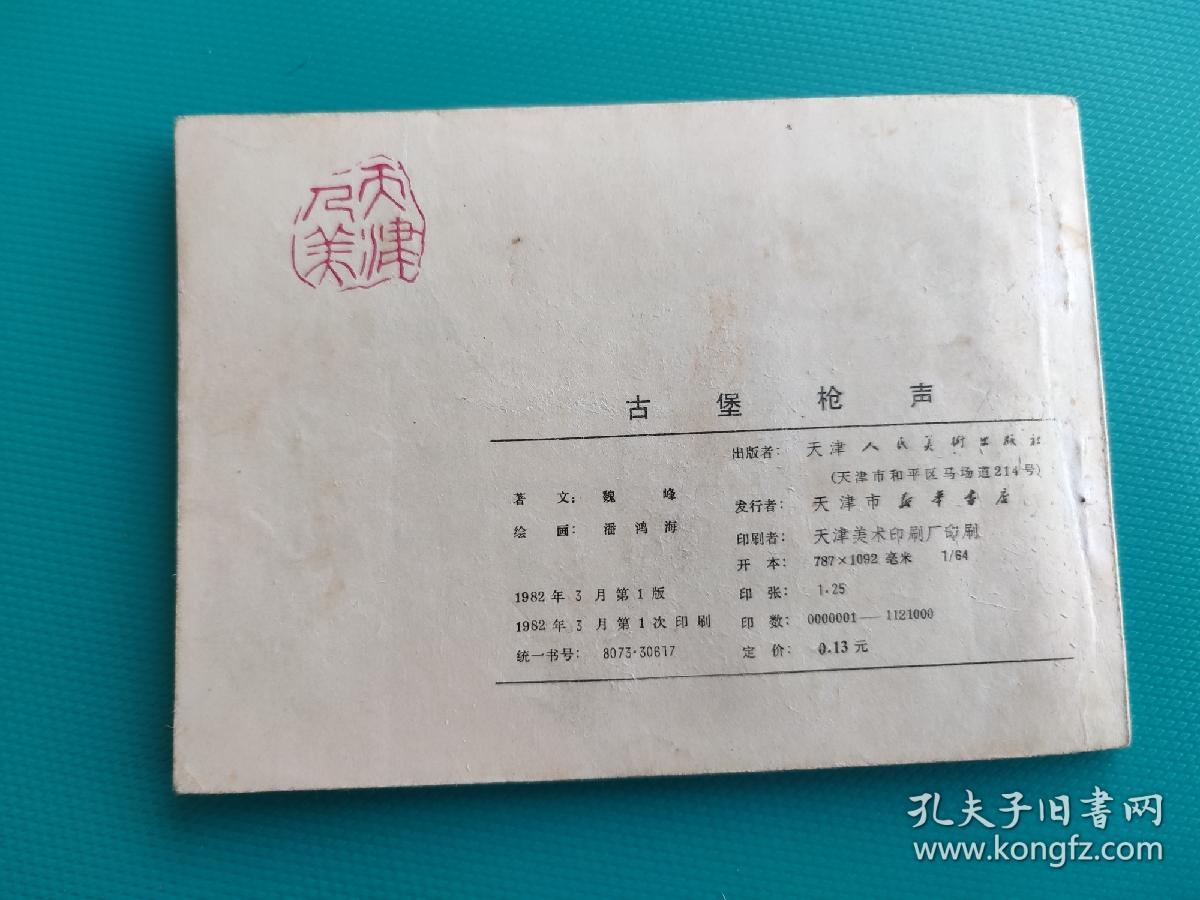 天津
人美
古堡枪声
著文：魏峰
绘画：潘鸿海
1982年3月第1版
1982年3月第1次印刷
统一书号：8073·30617
出版者：天津人民美術出版社
（天津市和平区马场道214号）
发行者：天津市新华书店
印刷者：天津美术印刷厂印刷
开本：787×1092毫米 1/64
印张：1·25
印数：0000001—1121000
定价：0.13元
孔夫子旧書网
www.kongfz.com